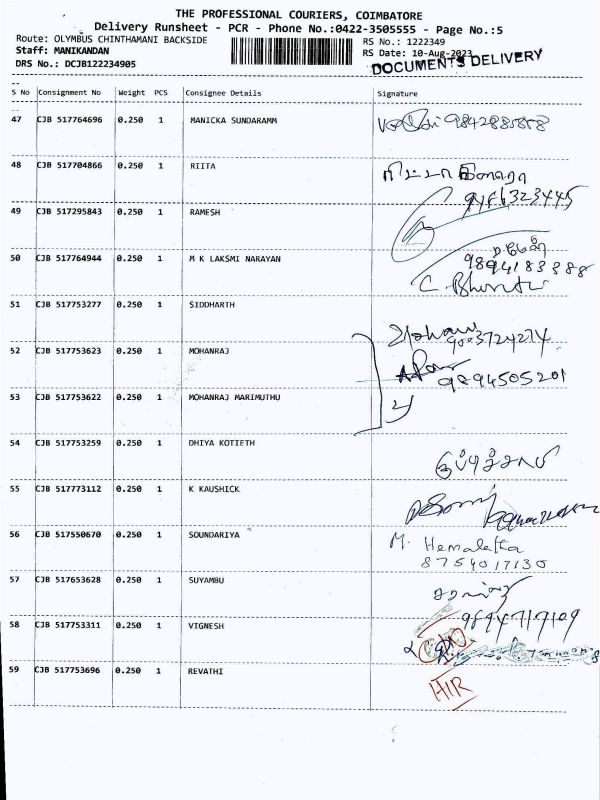 THE PROFESSIONAL COURIERS, COIMBATORE
Delivery Runsheet - PCR - Phone No.:0422-3505555 - Page No.:5
Route: OLYMBUS CHINTHAMANI BACKSIDE
RS No.: 1222349
Staff: MANIKANDAN
RS Date: 10-Aug-2023
DRS No.: DCJB122234905
DOCUMENTS DELIVERY
S No Consignment No Weight PCS Consignee Details Signature
47 CJB 517764696 0.250 1 MANICKA SUNDARAMM
48 CJB 517704866 0.250 1 RIITA
49 CJB 517295843 0.250 1 RAMESH
50 CJB 517764944 0.250 1 M K LAKSMI NARAYAN
9894183388
51 CJB 517753277 0.250 1 SIDDHARTH
C. Bharathi
52 CJB 517753623 0.250 1 MOHANRAJ
9003724274
9894505201
53 CJB 517753622 0.250 1 MOHANRAJ MARIMUTHU
54 CJB 517753259 0.250 1 DHIYA KOTIETH
55 CJB 517773112 0.250 1 K KAUSHICK
56 CJB 517550670 0.250 1 SOUNDARIYA
M. Hemalatha
8754017130
57 CJB 517653628 0.250 1 SUYAMBU
58 CJB 517753311 0.250 1 VIGNESH
9894717109
59 CJB 517753696 0.250 1 REVATHI
HIR